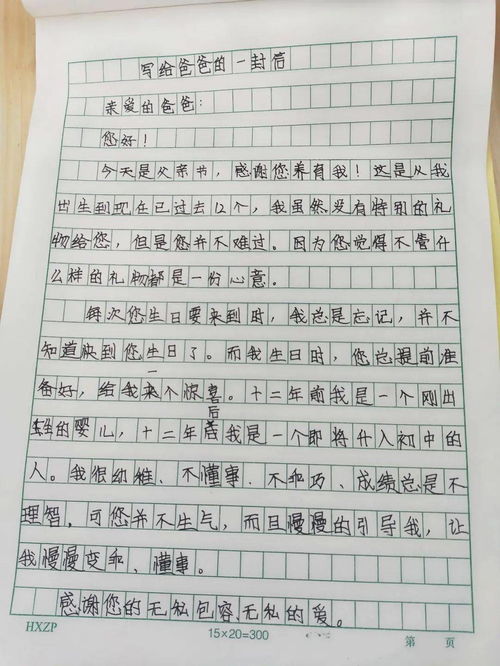 写给爸爸的一封信
亲爱的爸爸：
您好！
今天是父亲节，感谢您养育我！这是从我
出生到现在已过去12个，我虽然没有特别的礼
物给您，但是您并不难过。因为您觉得不管什
么样的礼物都是一份心意。
每次您生日要来到时，我总是忘记，并不
知道快到您生日了。而我生日时，您总提前准
备好，给我来个惊喜。十二年前我是一个刚出
生的婴儿，十二年后我是一个即将升入初中的
人。我很幼稚、不懂事、不乖巧、成绩总是不
理智，可您并不生气，而且慢慢的引导我，让
我慢慢变乖、懂事。
感谢您的无私包容无私的爱。
HXZP 15×20=300 第 页